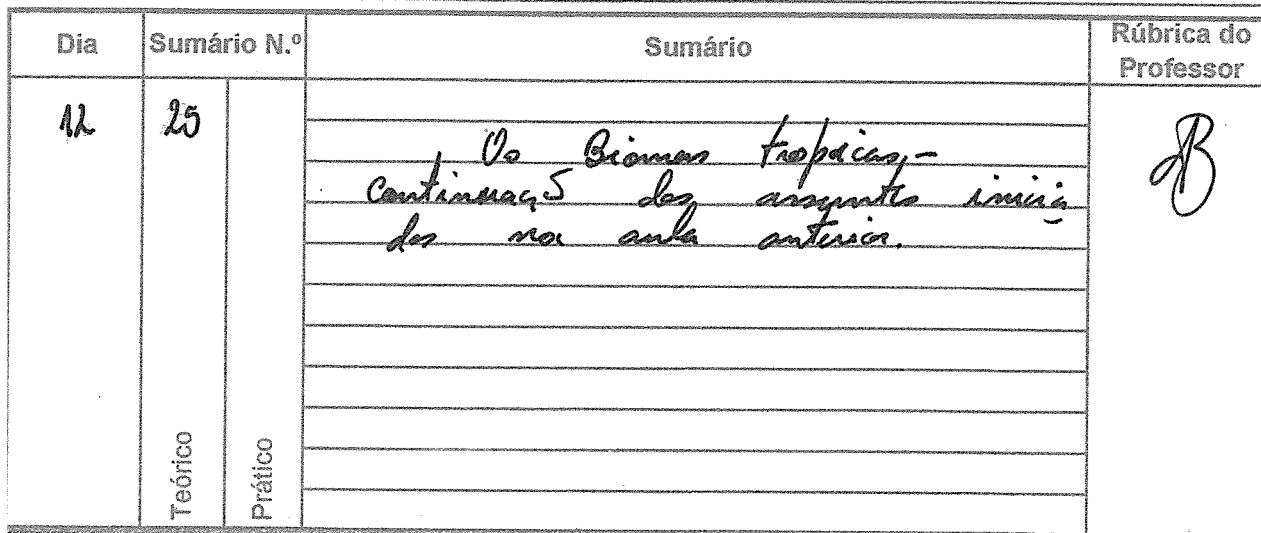 Dia Sumário N.º Sumário Rúbrica do Professor
12 25
Os Biomas tropicais,-
continuação dos assuntos inicia
dos na aula anterior.
Teórico Prático